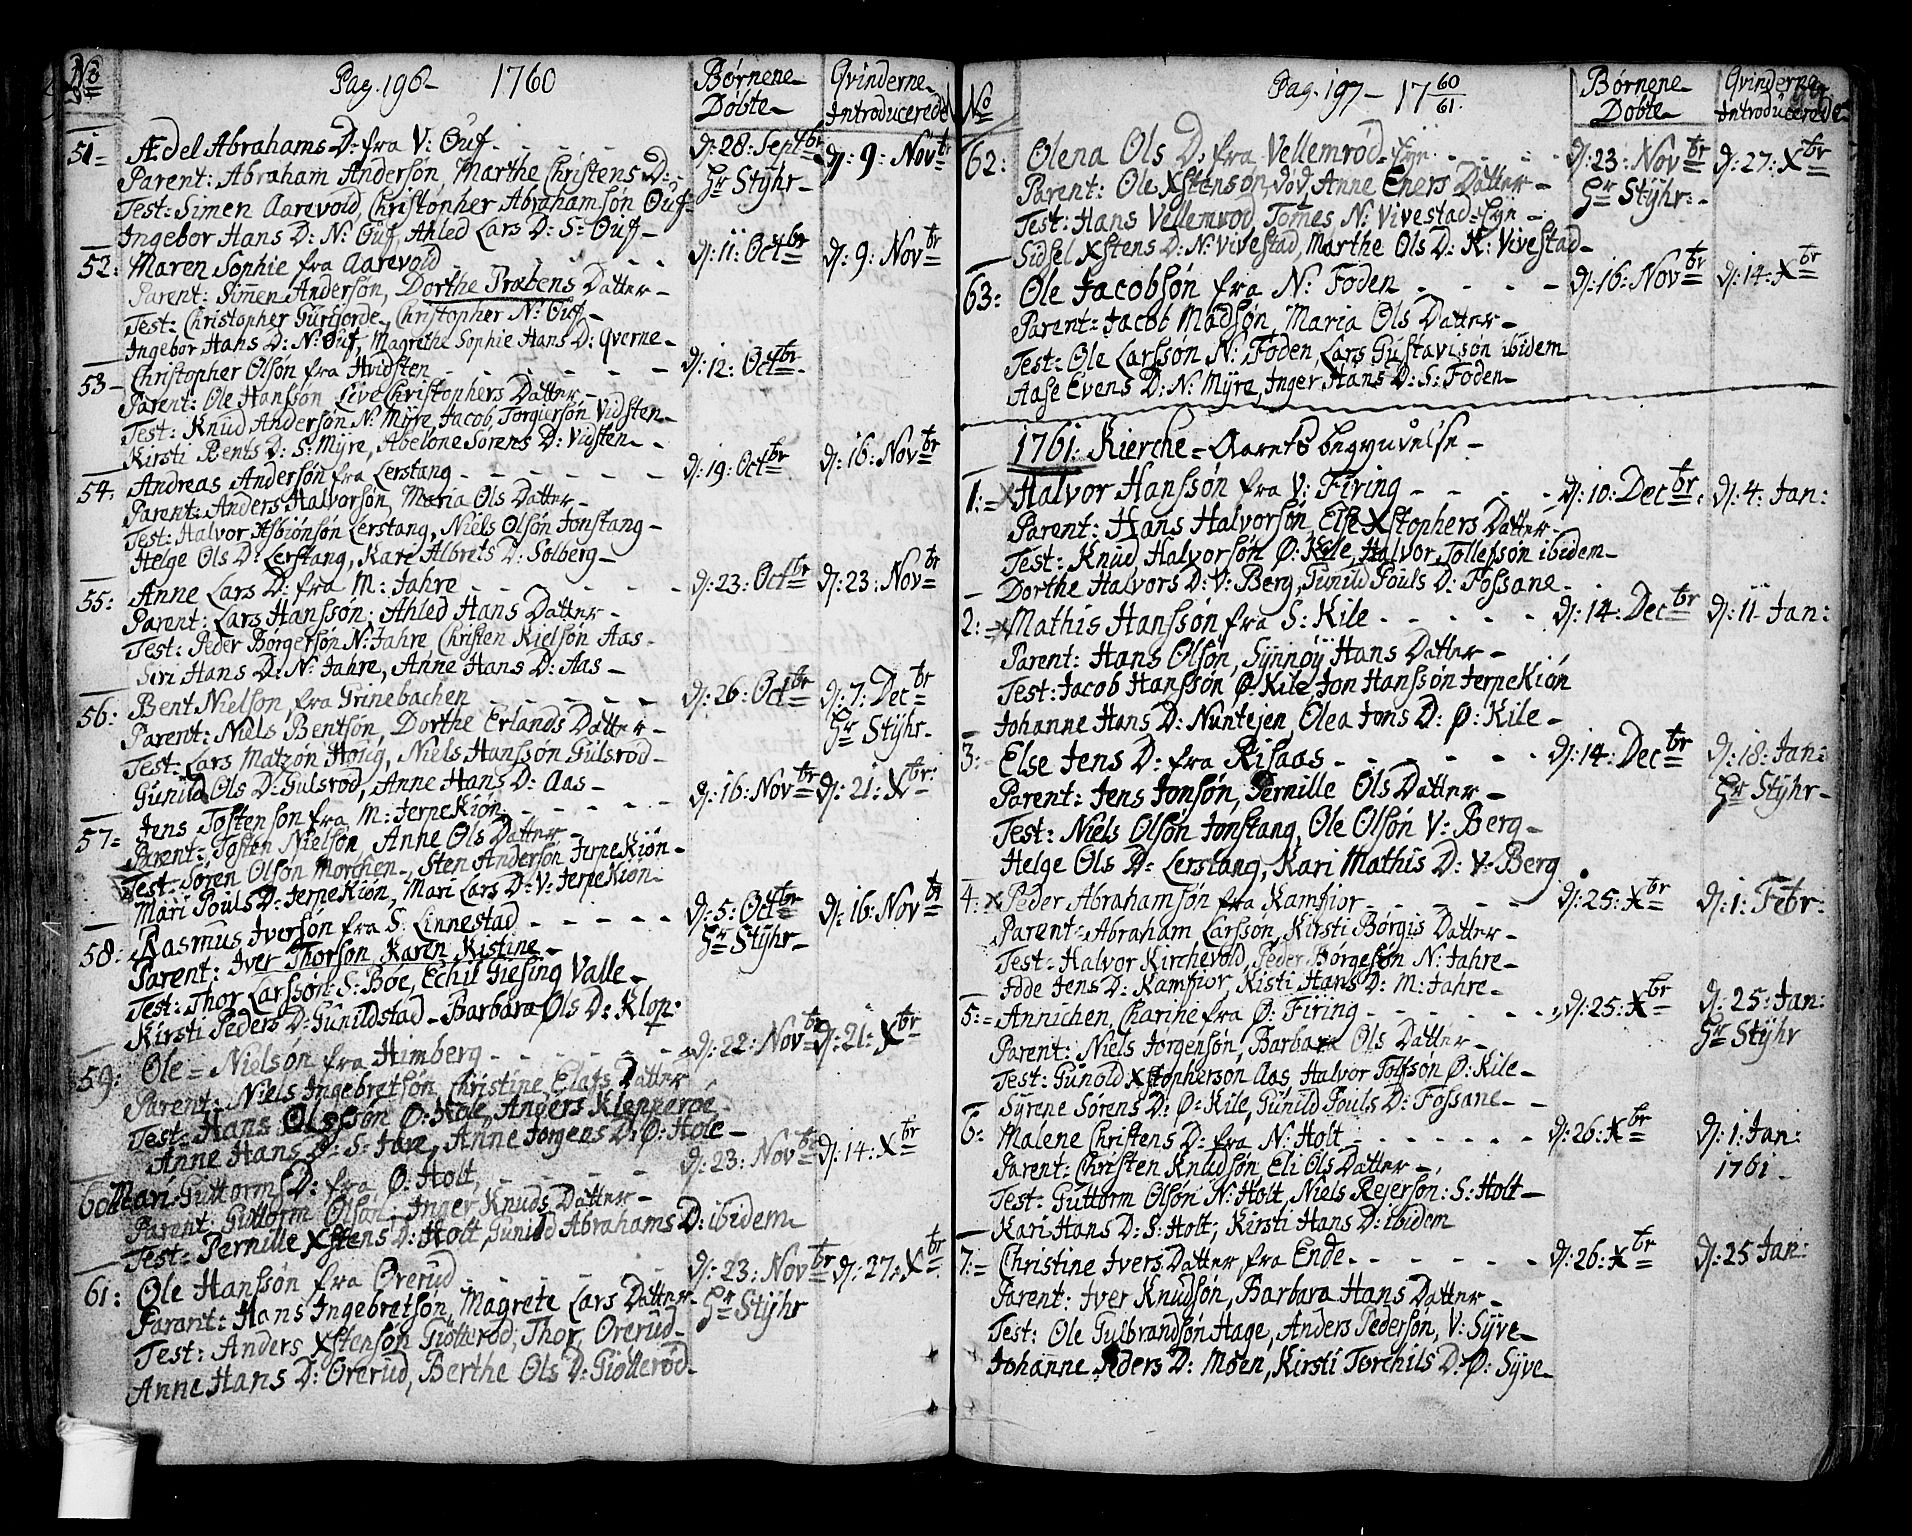 No Pag. 196 1760 Børnene Døbte Qvinderne Introducerede
51 Ædel Abrahams D: fra V: Øuf d: 28: Septbr d: 9: Novbr
Parent: Abraham Andersøn, Marthe Christens D: Hr Stÿhr
Test: Simen Aarevold, Christopher Abrahamsøn Øuf
Ingebor Hans D: N: Øuf, Ahled Lars D: S: Øuf
52: Maren Sophie fra Aarevold d: 11: Octbr d: 9: Novbr
Parent: Simen Andersøn, Dorthe Præbens Datter
Test: Christopher Gurijorde, Christopher N: Øuf
Ingebor Hans D: N: Øuf, Magrethe Sophie Hans D: Qverne
53 Christopher Olsøn fra Hvidsten d: 12: Octbr
Parent: Ole Hanssøn Live Christophers Datter
Test: Knud Andersøn N: Mÿre, Jacob Torgiersøn Vidsten
Kirsti Bents D: S: Mÿre, Abelone Sørens D: Vidsten
54: Andreas Andersøn fra Lerstang d: 19: Octbr d: 16: Novbr
Parent: Anders Halvorsøn, Maria Ols Datter
Test: Halvor Asbiønsøn Lerstang, Niels Olsøn Jonstang
Helge Ols D: Lerstang, Kare Albrets D: Solberg
55: Anne Lars D: fra M: Jahre d: 23: Octbr d: 23: Novbr
Parent: Lars Hanssøn, Ahled Hans Datter
Test: Peder Børgersøn N: Jahre Christen Kielsøn Aas
Siri Hans D: N: Jahre, Anne Hans D: Aas
56: Bent Nielsøn, fra Grinebachen d: 26: Octbr d: 7: Decbr
Parent: Niels Bentsøn, Dorthe Erlands Datter Hr Stÿhr
Test: Lars Matzøn Høiig, Niels Hanssøn Gulsrod
Gunild Ols D: Gulsrod, Anne Hans D: Aas
57 Jens Tostensøn fra M: Jerpekiøn d: 16: Novbr d: 21: Xbr
Parent: Tosten Nielsøn Anne Ols Datter
Test: Søren Olsøn Morchen, Sten Andersøn Jerpekiøn
Mari Pouls D: Jerpekiøn, Mari Lars D: V: Jerpekiøn
58: Rasmus Iversøn fra S: Linnestad d: 5: Octbr d: 16: Novbr
Parent: Iver Thorsøn Karen Kistine Hr Stÿhr
Test: Thor Larssøn S: Bøe, Echil Giesing Valle
Kirsti Peders D: Gunildstad Barbara Ols D: Klop:
59: Ole Nielsøn fra Himberg d: 22: Novbr d: 21: Xbr
Parent: Niels Ingebretsøn, Christine Elafs Datter
Test: Hans Olssøn Ø: Hole, Anders Klepperøe
Anne Hans D: S: Jare, Anne Jorgens D: Ø: Hole
60 Mari Guttorms D: fra Ø: Holt d: 23: Novbr d: 14: Xbr
Parent: Guttorm Olsøn, Inger Knuds Datter
Test: Pernille Xstens D: Holt, Gunild Abrahams D: ibidem
61: Ole Hanssøn fra Ørerud d: 23: Novbr d: 27: Xbr
Pararit: Hans Ingebretsøn, Magrete Lars Datter Hr Stÿhr
Test: Anders Xstensøn Giøtterød, Thor Ørerud
Anne Hans D: Ørerud, Berthe Ols D: Giøtterød
No Pag. 197 17 60/61. Børnene Døbte Qvinderne Introducerede
62: Olena Ols D: fra Vellemrød Fÿn d: 23: Novbr d: 27: Xbr
Parent: Ole Xstensøn død, Anne Eners Datter Hr Stÿhr
Test: Hans Vellemrod, Tomes N: Vivestad Fÿn
Sidsel Xstens D: N: Vivestad, Marthe Ols D: N: Vivestad
63: Ole Jacobsøn fra N: Foden d: 16: Novbr d: 14: Xbr
Parent: Jacob Madsøn, Maria Ols Datter
Test: Ole Larssøn N: Foden, Lars Gustavisøn ibidem
Aase Evens D: N: Mÿre, Inger Hans D: S: Foden
1761: Kierche-Aarets begyndelse
1: Halvor Hanssøn fra V: Firing d: 10: Decbr: d: 4: Jan:
Parent: Hans Halvorsøn Else Xstophers Datter
Test: Knud Halvorsøn Ø: Kile, Halvor Tollefsøn ibidem
Dorthe Halvors D: V: Berg, Gunild Pouls D: Fossane
2: Mathis Hanssøn fra S: Kile d: 14: Decbr d: 11: Jan:
Parent: Hans Olsøn, Sÿnnøÿ Hans Datter
Test: Jacob Hanssøn Ø: Kile, Jon Hanssøn Jerpekiøn
Johanne Hans D: Nuntejen, Olea Jons D: Ø: Kile
3: Else Jens D: fra Risaas d: 14: Decbr d: 18: Jan:
Parent: Jens Jonsøn, Pernille Ols Datter Hr Stÿhr
Test: Niels Olsøn Jonstang, Ole Olsøn V: Berg
Helge Ols D: Lerstang, Kari Mathis D: V: Berg
4: Peder Abrahamsøn fra Kamfior d: 25: Xbr d: 1: Febr:
Parent: Abraham Larssøn, Kirsti Børgis Datter
Test: Halvor Kirchevold, Peder Børgesøn N: Jahre
Jdde Jens D: Kamfior, Kisti Hans D: M: Jahre
5: Annichen Charine fra Ø: Firing d: 25: Xbr d: 25: Jan:
Parent: Niels Jorgensøn, Barbara Ols Datter Hr Stÿhr
Test: Gunold Xstopherson Aas, Halvor Tolfsøn Ø: Kile
Sÿrene Sørens D: Ø: Kile, Gunild Pouls D: Fossane
6: Malene Christens D: fra N: Holt d: 26: Xbr d: 1: Jan:
Parent: Christen Knudsøn, Eli Ols Datter 1761
Test: Guttorm Olsøn N: Holt, Niels Rejersøn: S: Holt
Kari Hans D: S: Holt, Kirsti Hans D: ibidem
7: Christine Ivers Datter fra Ende d: 26: Xbr d: 25 Jan:
Parent: Iver Knudsøn, Barbara Hans Datter
Test: Ole Gulbrandsøn Hage, Anders Pedersøn, V: Sÿve
Johanne Peders D: Moen, Kirsti Torchils D: Ø: Sÿve